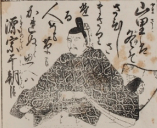 山里は
冬そ
さひしさ
まさりける
人めも草も
かれぬと思へは
源宗于朝臣